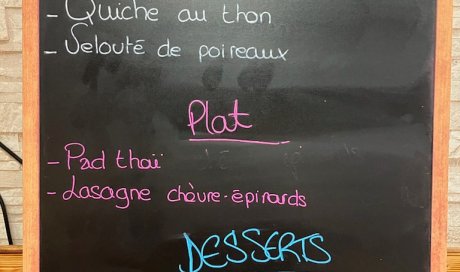 - Quiche au thon
- Velouté de poireaux
Plat
- Pad thaï
- Lasagne chèvre-épinards
DESSERTS